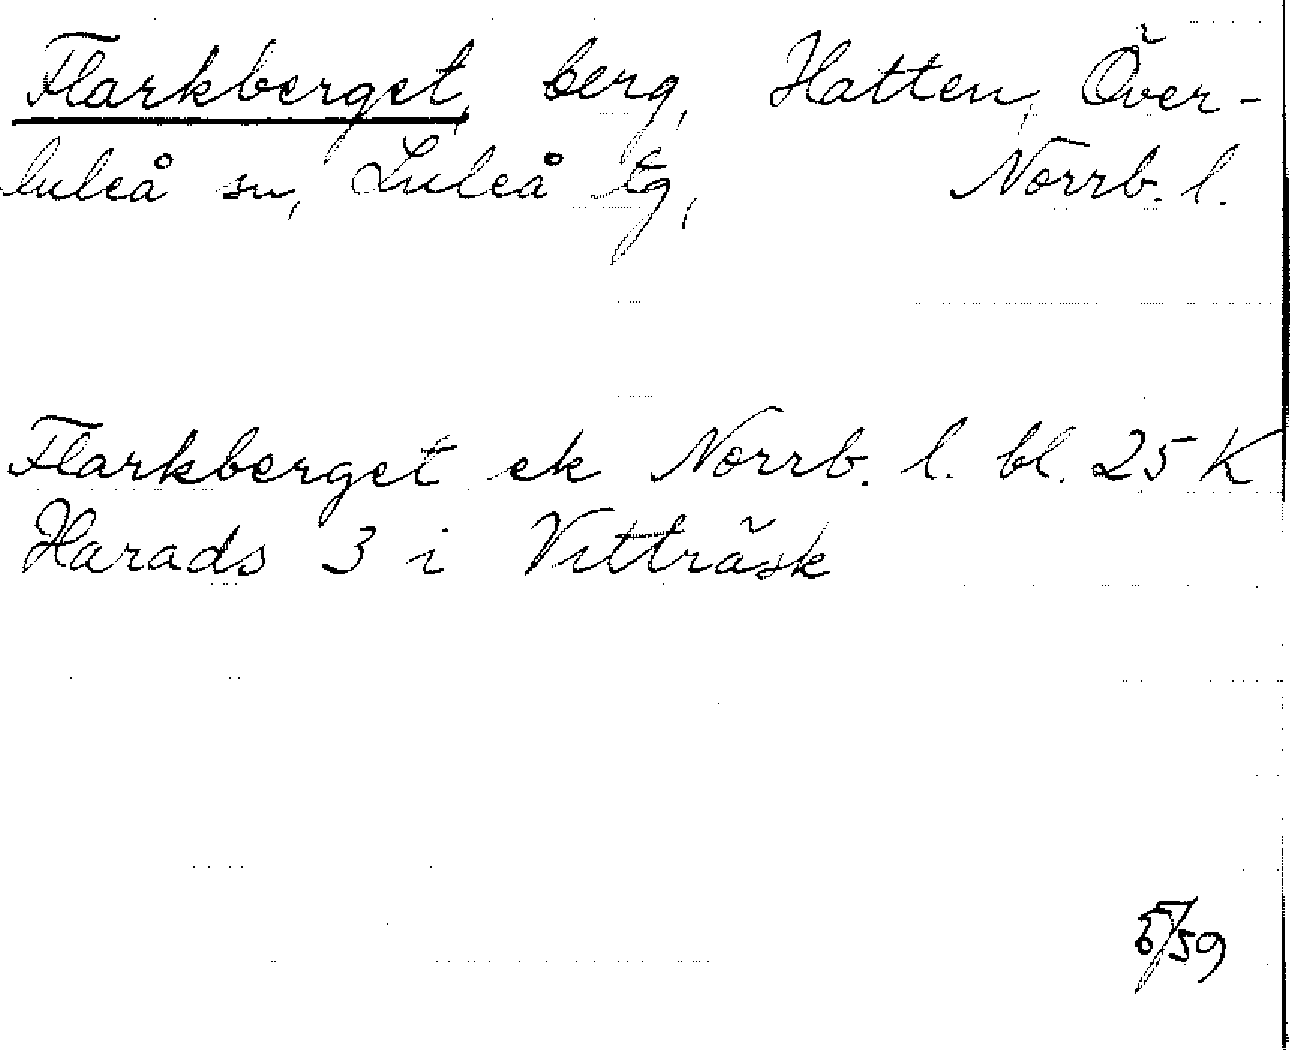 Flarkberget, berg, Hatten, Över-
luleå sn, Luleå tg, Norrb. l.
Flarkberget ek Norrb. l. bl. 25 K
Harads 3 i Vitträsk